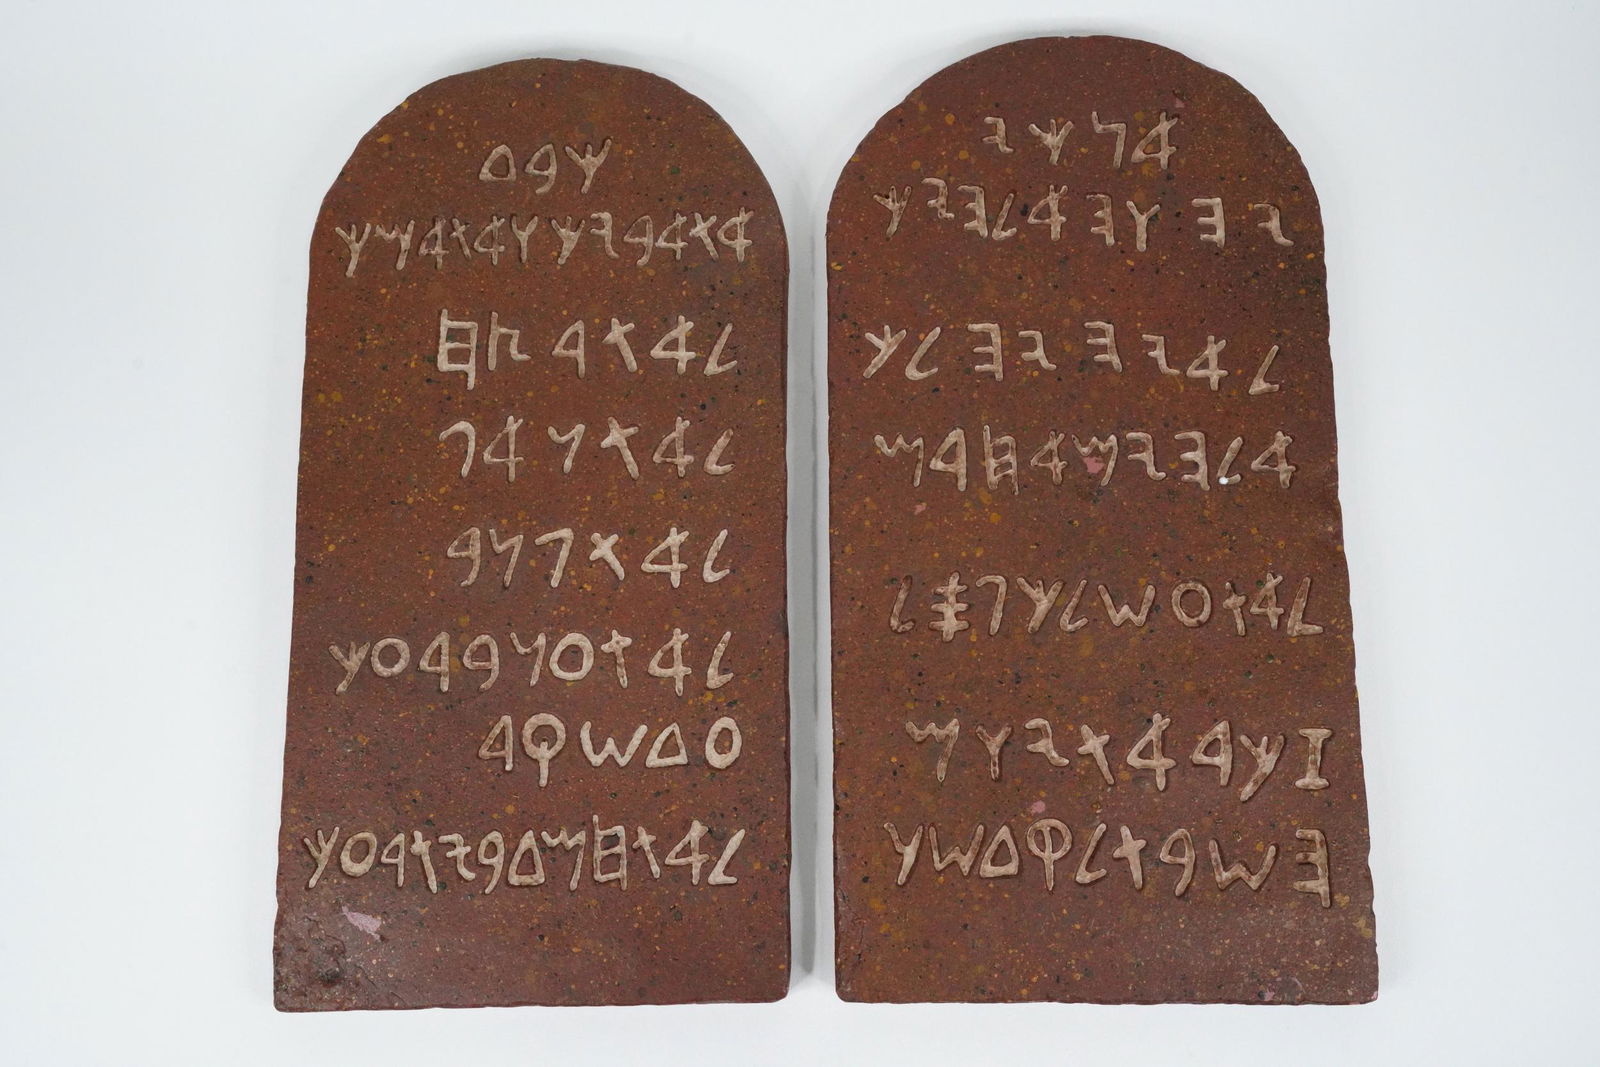 𐤀𐤍𐤊𐤉
𐤉𐤄𐤅𐤄 𐤀𐤋𐤄𐤉𐤊
𐤋𐤀 𐤉𐤄𐤉𐤄 𐤋𐤊
𐤀𐤋𐤄𐤉𐤌𐤀𐤇𐤓𐤌
𐤋𐤀𐤕𐤏𐤔𐤋𐤊𐤐𐤎𐤋
𐤆𐤊𐤓𐤀𐤕𐤉𐤅𐤌
𐤄𐤔𐤁𐤕𐤋𐤒𐤃𐤔𐤅
𐤊𐤁𐤃
𐤀𐤕𐤀𐤁𐤉𐤊𐤅𐤀𐤕𐤀𐤌𐤊
𐤋𐤀𐤕𐤓𐤑𐤇
𐤋𐤀𐤕𐤍𐤀𐤐
𐤋𐤀𐤕𐤂𐤍𐤁
𐤋𐤀𐤕𐤏𐤍𐤁𐤓𐤏𐤊
𐤏𐤃𐤔𐤒𐤓
𐤋𐤀𐤕𐤇𐤌𐤃𐤁𐤉𐤕𐤓𐤏𐤊